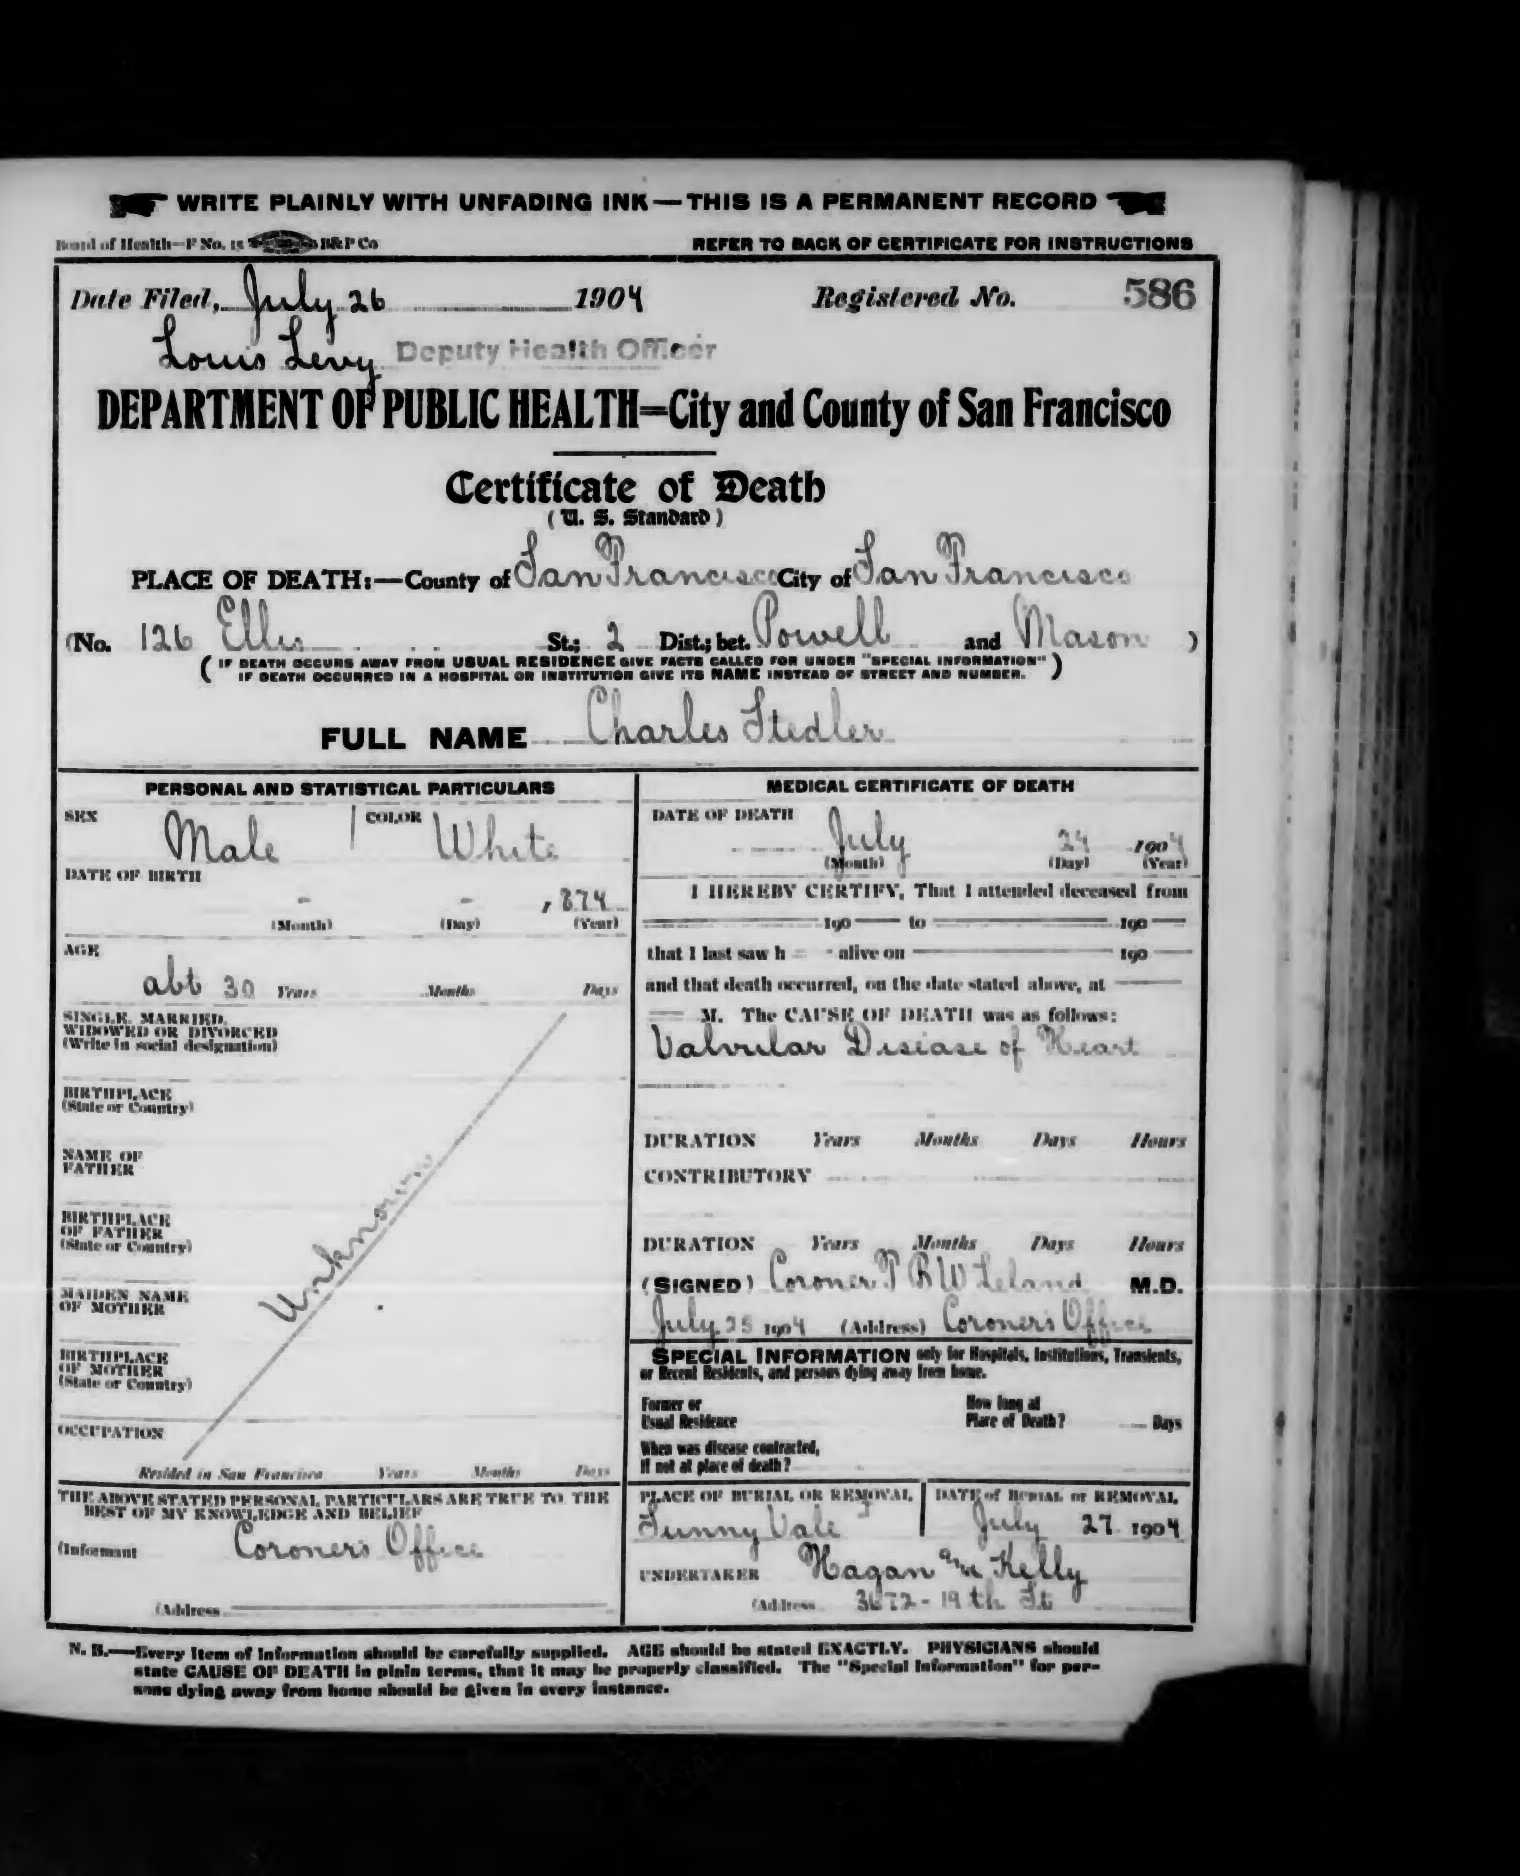 WRITE PLAINLY WITH UNFADING INK — THIS IS A PERMANENT RECORD
Board of Health—F No. 15 B&P Co REFER TO BACK OF CERTIFICATE FOR INSTRUCTIONS
Date Filed, July 26 1904 Registered No. 586
Louis Levy Deputy Health Officer
DEPARTMENT OF PUBLIC HEALTH=City and County of San Francisco
Certificate of Death
( U. S. Standard )
PLACE OF DEATH:—County of San Francisco City of San Francisco
(No. 126 Ellis St.; 2 Dist.; bet. Powell and Mason )
( IF DEATH OCCURS AWAY FROM USUAL RESIDENCE GIVE FACTS CALLED FOR UNDER "SPECIAL INFORMATION"
IF DEATH OCCURRED IN A HOSPITAL OR INSTITUTION GIVE ITS NAME INSTEAD OF STREET AND NUMBER. )
FULL NAME Charles Stedler
PERSONAL AND STATISTICAL PARTICULARS
SEX Male COLOR White
DATE OF BIRTH
- - , 874
(Month) (Day) (Year)
AGE
abt 30 Years Months Days
SINGLE, MARRIED,
WIDOWED OR DIVORCED
(Write in social designation)
BIRTHPLACE
(State or Country)
NAME OF
FATHER
BIRTHPLACE
OF FATHER
(State or Country)
Unknown
MAIDEN NAME
OF MOTHER
BIRTHPLACE
OF MOTHER
(State or Country)
OCCUPATION
Resided in San Francisco Years Months Days
THE ABOVE STATED PERSONAL PARTICULARS ARE TRUE TO THE
BEST OF MY KNOWLEDGE AND BELIEF
(Informant Coroner's Office
(Address
MEDICAL CERTIFICATE OF DEATH
DATE OF DEATH
July 24 1904
(Month) (Day) (Year)
I HEREBY CERTIFY, That I attended deceased from
190 to 190
that I last saw h alive on 190
and that death occurred, on the date stated above, at
M. The CAUSE OF DEATH was as follows:
Valvular Disease of Heart
DURATION Years Months Days Hours
CONTRIBUTORY
DURATION Years Months Days Hours
(SIGNED) Coroner T B W Leland M.D.
July 25 1904 (Address) Coroner's Office
SPECIAL INFORMATION only for Hospitals, Institutions, Transients,
or Recent Residents, and persons dying away from home.
Former or
Usual Residence
How long at
Place of Death? Days
When was disease contracted,
If not at place of death?
PLACE OF BURIAL OR REMOVAL DATE of BURIAL or REMOVAL
Sunny Vale July 27 1904
UNDERTAKER Hagan Kelly
(Address 3672 - 19th St
N. B.—Every item of information should be carefully supplied. AGE should be stated EXACTLY. PHYSICIANS should
state CAUSE OF DEATH in plain terms, that it may be properly classified. The "Special Information" for per-
sons dying away from home should be given in every instance.